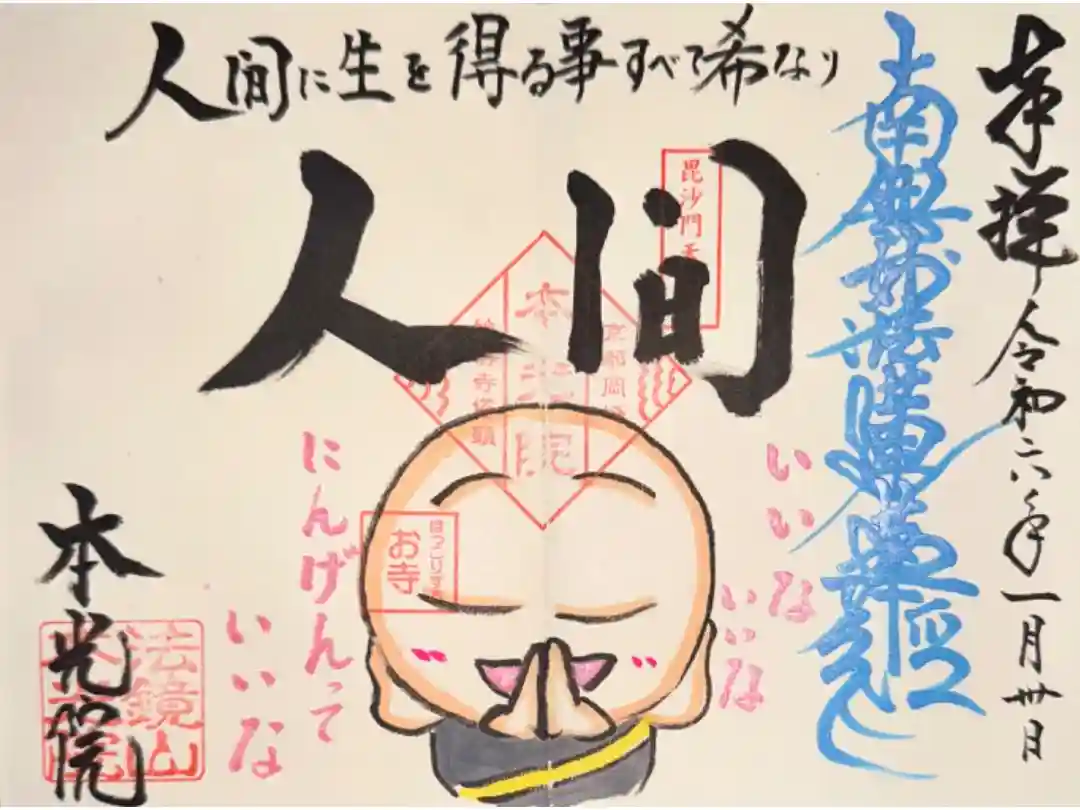 奉拝 令和六年一月卅日
南無妙法蓮華経
人間に生を得る事すべて希なり
人間
毘沙門天
本光院
寺塔頭
いいな
いいな
にんげんって
いいな
ほっこりする
お寺
本光院
法鏡山